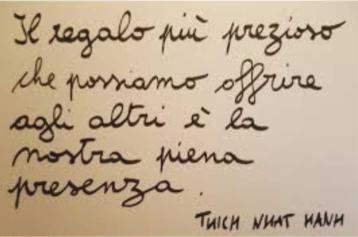 Il regalo più prezioso
che possiamo offrire
agli altri è la
nostra piena
presenza.
THICH NHAT HANH